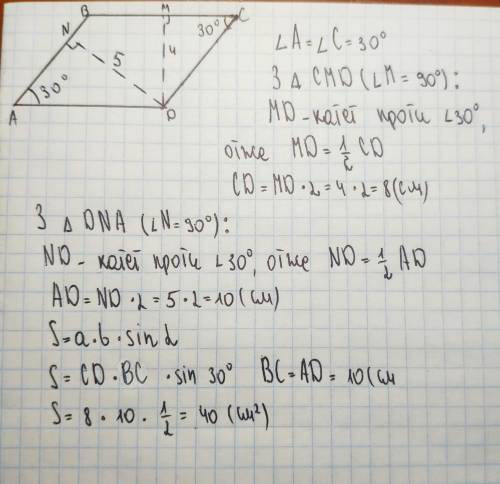 B M C
N 30°
5 4
30°
A D
∠A=∠C=30°
З Δ CMD (∠M=90°):
MD-катет проти ∠30°,
отже MD=1/2 CD
CD=MD·2=4·2=8(см)
З Δ DNA (∠N=90°):
ND- катет проти ∠30°, отже ND=1/2 AD
AD=ND·2=5·2=10(см)
S=a·b·sin α
S=CD·BC ·sin 30° BC=AD=10(см
S=8·10·1/2=40(см²)